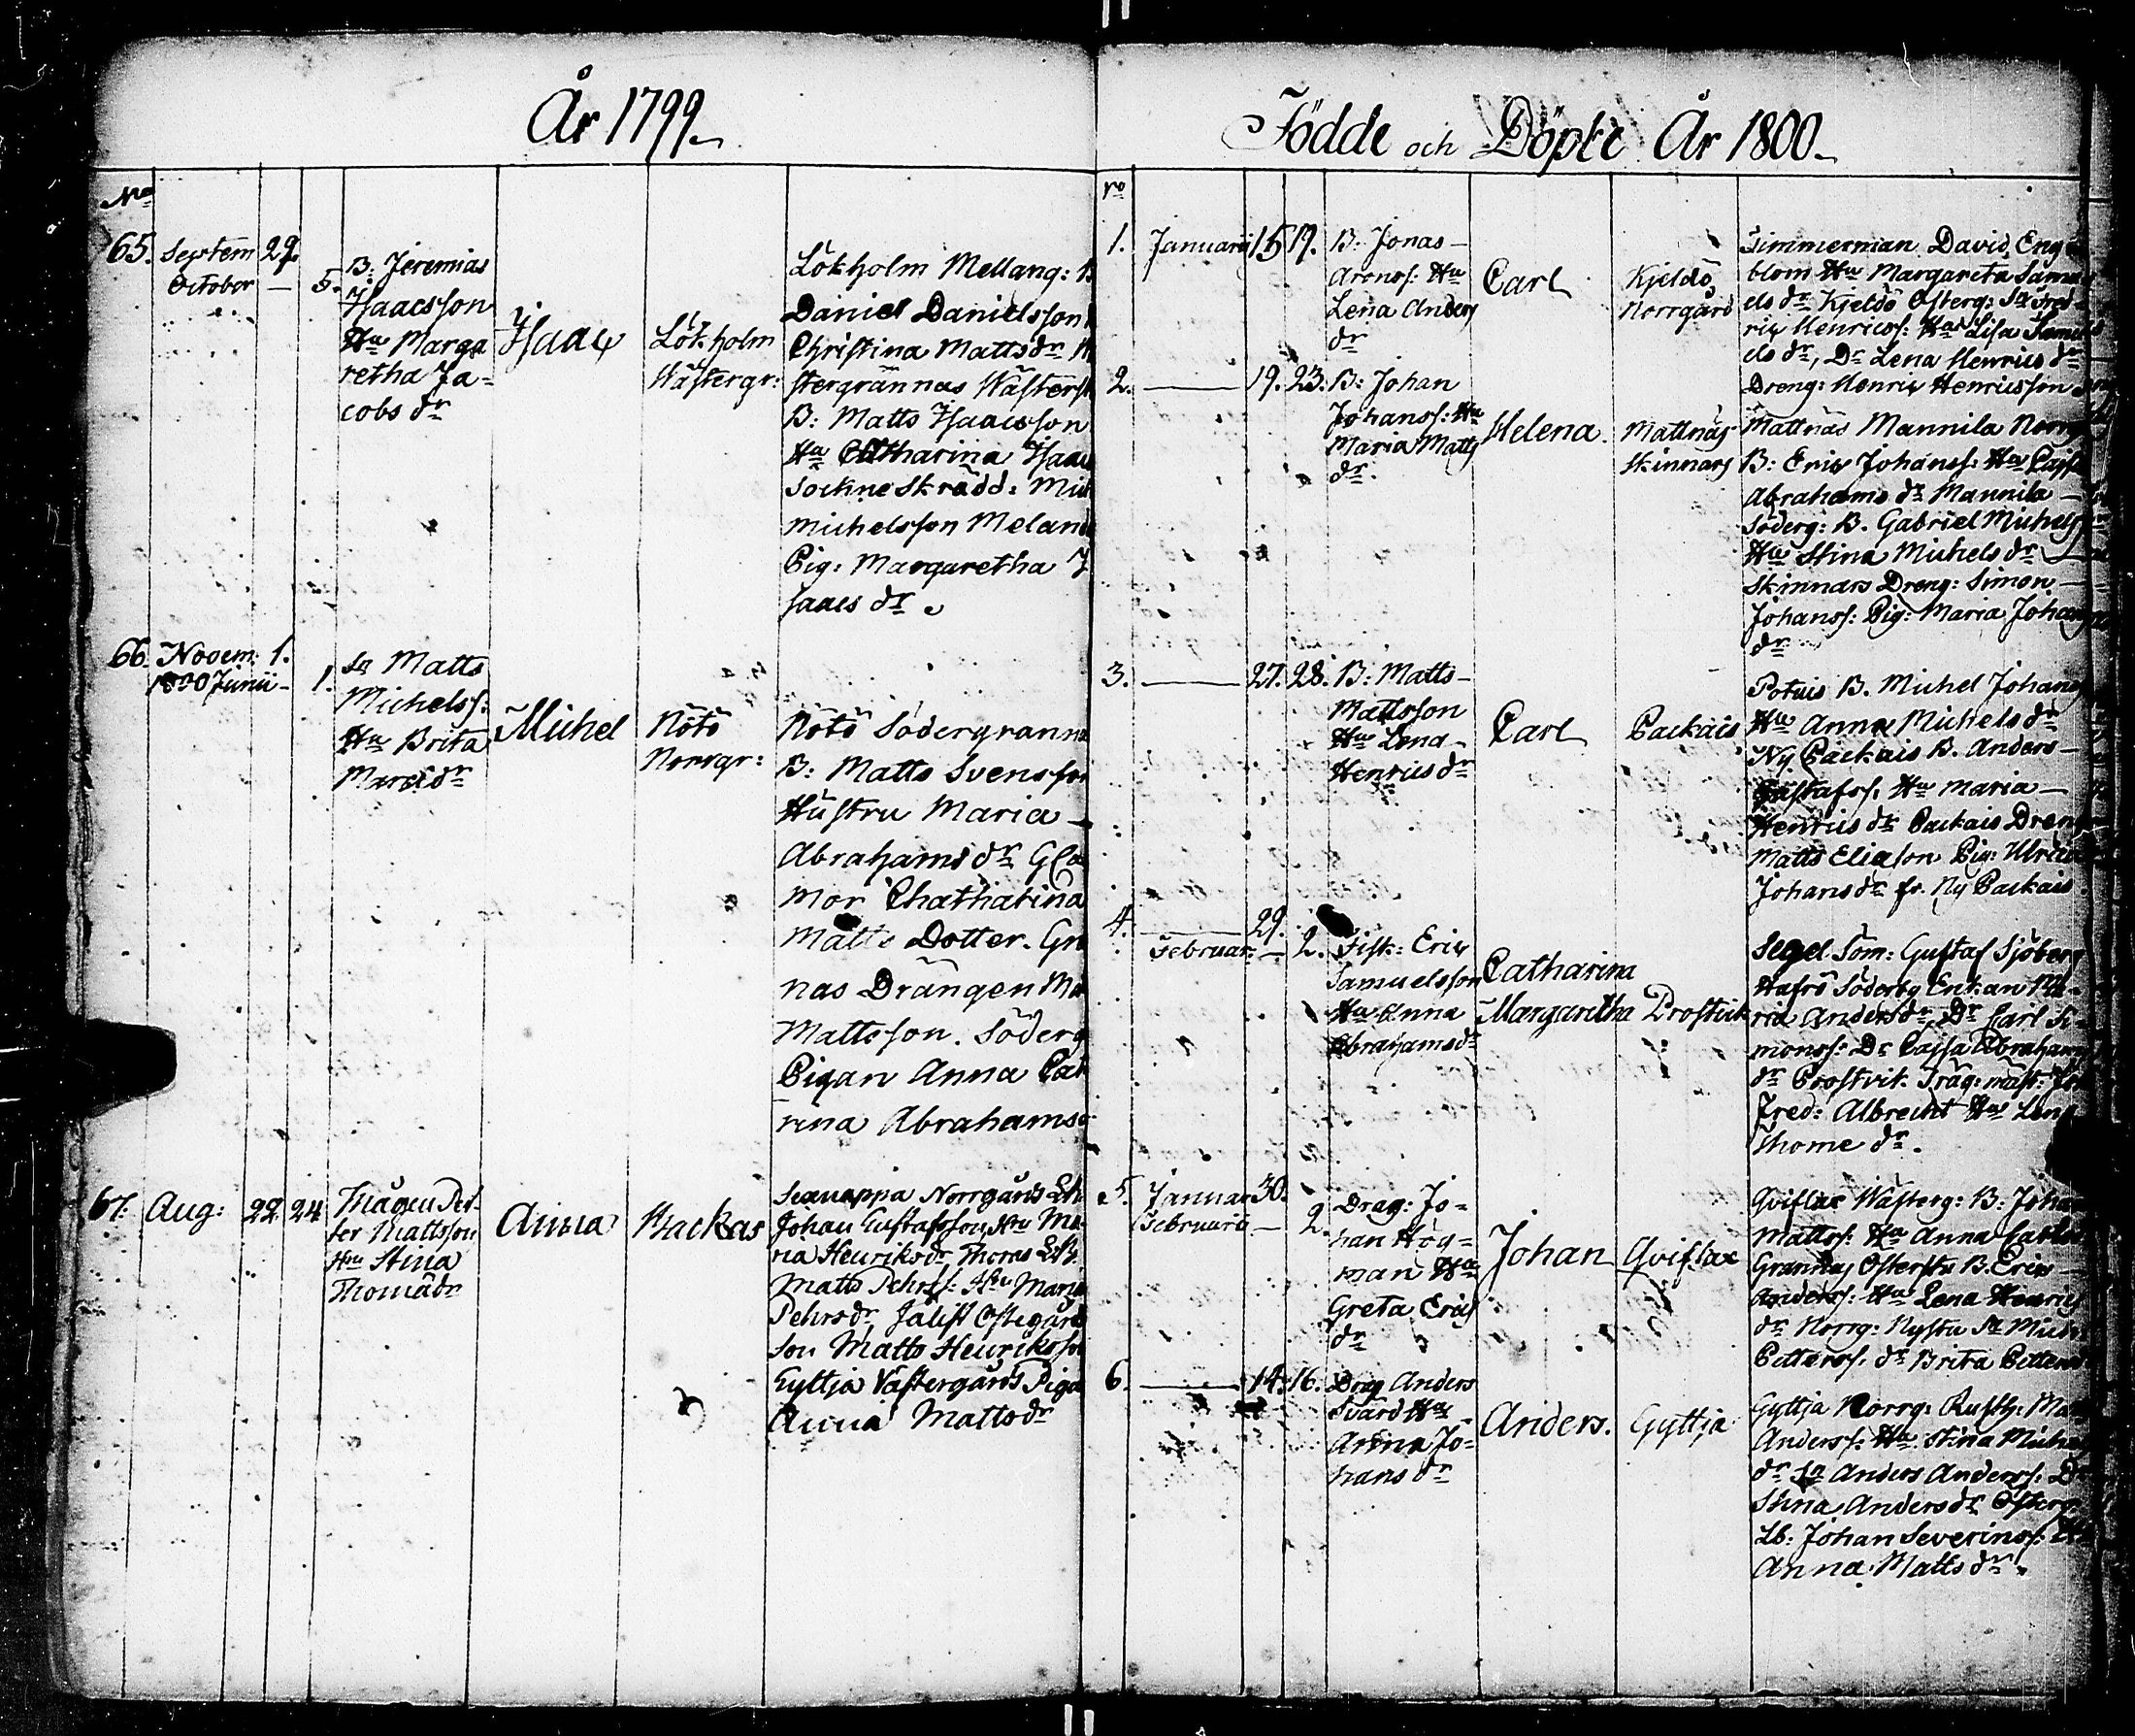 År 1799.
No
65. Septem 29.
October — 5.
B: Jeremias
Isaacsson
Hu Marga
retha Ja-
cobs dr
Isaac
Lökholm
Wästergr:
Lökholm Mellang:
Daniel Danielsson
Christina Matts dr
stergrännas Wästerst
B: Matts Isaacsson
Hu Catharina Isaac
Sockne Skrädd: Mich
Michelsson Meland
Pig: Margaretha I
saacs dr
66. Novem: 1.
1800 Junii — 1.
Sn Matts
Michelss:
Hu Brita
Marci dr
Michel
Nötö
Norrgr:
Nötö Södergranna
B: Matts Svensson
Hustru Maria —
Abrahams dr Gla
mor Chatharina
Matts Dotter. Gra
nas Drängen Ma
Mattsson. Söderg
Pigan Anna Cat
rina Abrahams
67. Aug: 22. 24
Mågen Pet-
ter Mattsson
Hu Stina
Thomædr
Anna
Backas
Norrgårds
Johan Gustafsson, Hu Ma-
ria Henriksdr Thoras
Matts Pehrss: Hu Maria
Pehrsdr, Jälist Östegårds
Son Matts Henriksson
Gyttja Västergårds Piga
Anna Mattsdr
Födde och Döpte År 1800.
No
1. Januarii 15 19.
B: Jonas —
Aronss: Hu
Lena Anders
dr
Carl
Kjeldö
Norrgård
Timmerman David Eng
blom Hu Margareta Samu
els dr Kjeldö Österg: Sn Fred-
ric Henricss: Hu Lisa Samu
els dr, Dr Lena Henrics dr
Dreng: Henric Henricsson
2. — 19. 23.
B: Johan
Johanss: Hu
Maria Matts
dr.
Helena.
Mattnäs
Skinnars
Mattnäs Mannila Norrg
B: Eric Johanss: Hu Cajsa
Abrahams dr Mannila —
Söderg: B. Gabriel Michels
Hu Stina Michels dr —
Skinnars Dreng: Simon —
Johanss: Pig: Maria Johans
dr
3. — 27. 28.
B: Matts —
Mattsson
Hu Lena
Henrics dr
Carl
Packais
Potuis B. Michel Johans
Hu Anna Michels dr
Ny Packais B. Anders —
Gustafss. Hu Maria —
Henrics dr Packais Dreng
Matts Eliasson Pig: Ulrica
Johans dr fr. Ny Packais
4. — 29.
Februar: — 2.
Fisk: Eric
Samuelsson
Hu Anna
Abrahamsdr
Catharina
Margaretha
Prostvik
Segel Söm: Gustaf Sjöberg
Hafrö Söderby Enkan Ma-
ria Anders dr, Dr Carl Si-
monss: Dr Cajsa Abraham
dr Prostvik. Träg: mäst:
Fred: Albrecht Hu Lena
Thome dr.
5. Januar 30.
Februarii — 2
Drag: Jo-
han Hög-
man Hu
Greta Erics
dr
Johan
Qviflax
Qviflax Wästerg: B: Joha
Mattss: Hu Anna Carls
Grannas Österstu B. Eric —
Anderss: Hu Lena Henrics
dr Norrg: Nystu Sn Mich
Petterss. dr Brita Petters
6. — 14. 16.
Drag Anders
Svärd Hu
Anna Jo-
hans dr
Anders.
Gyttja
Gyttja Norrg: Rusth: Ma
Anderss: Hu Stina Miche
dr Sn Anders Anderss. Dr
Stina Anders dr Österg
Lb: Johan Severinss: Hu
Anna Matts dr.